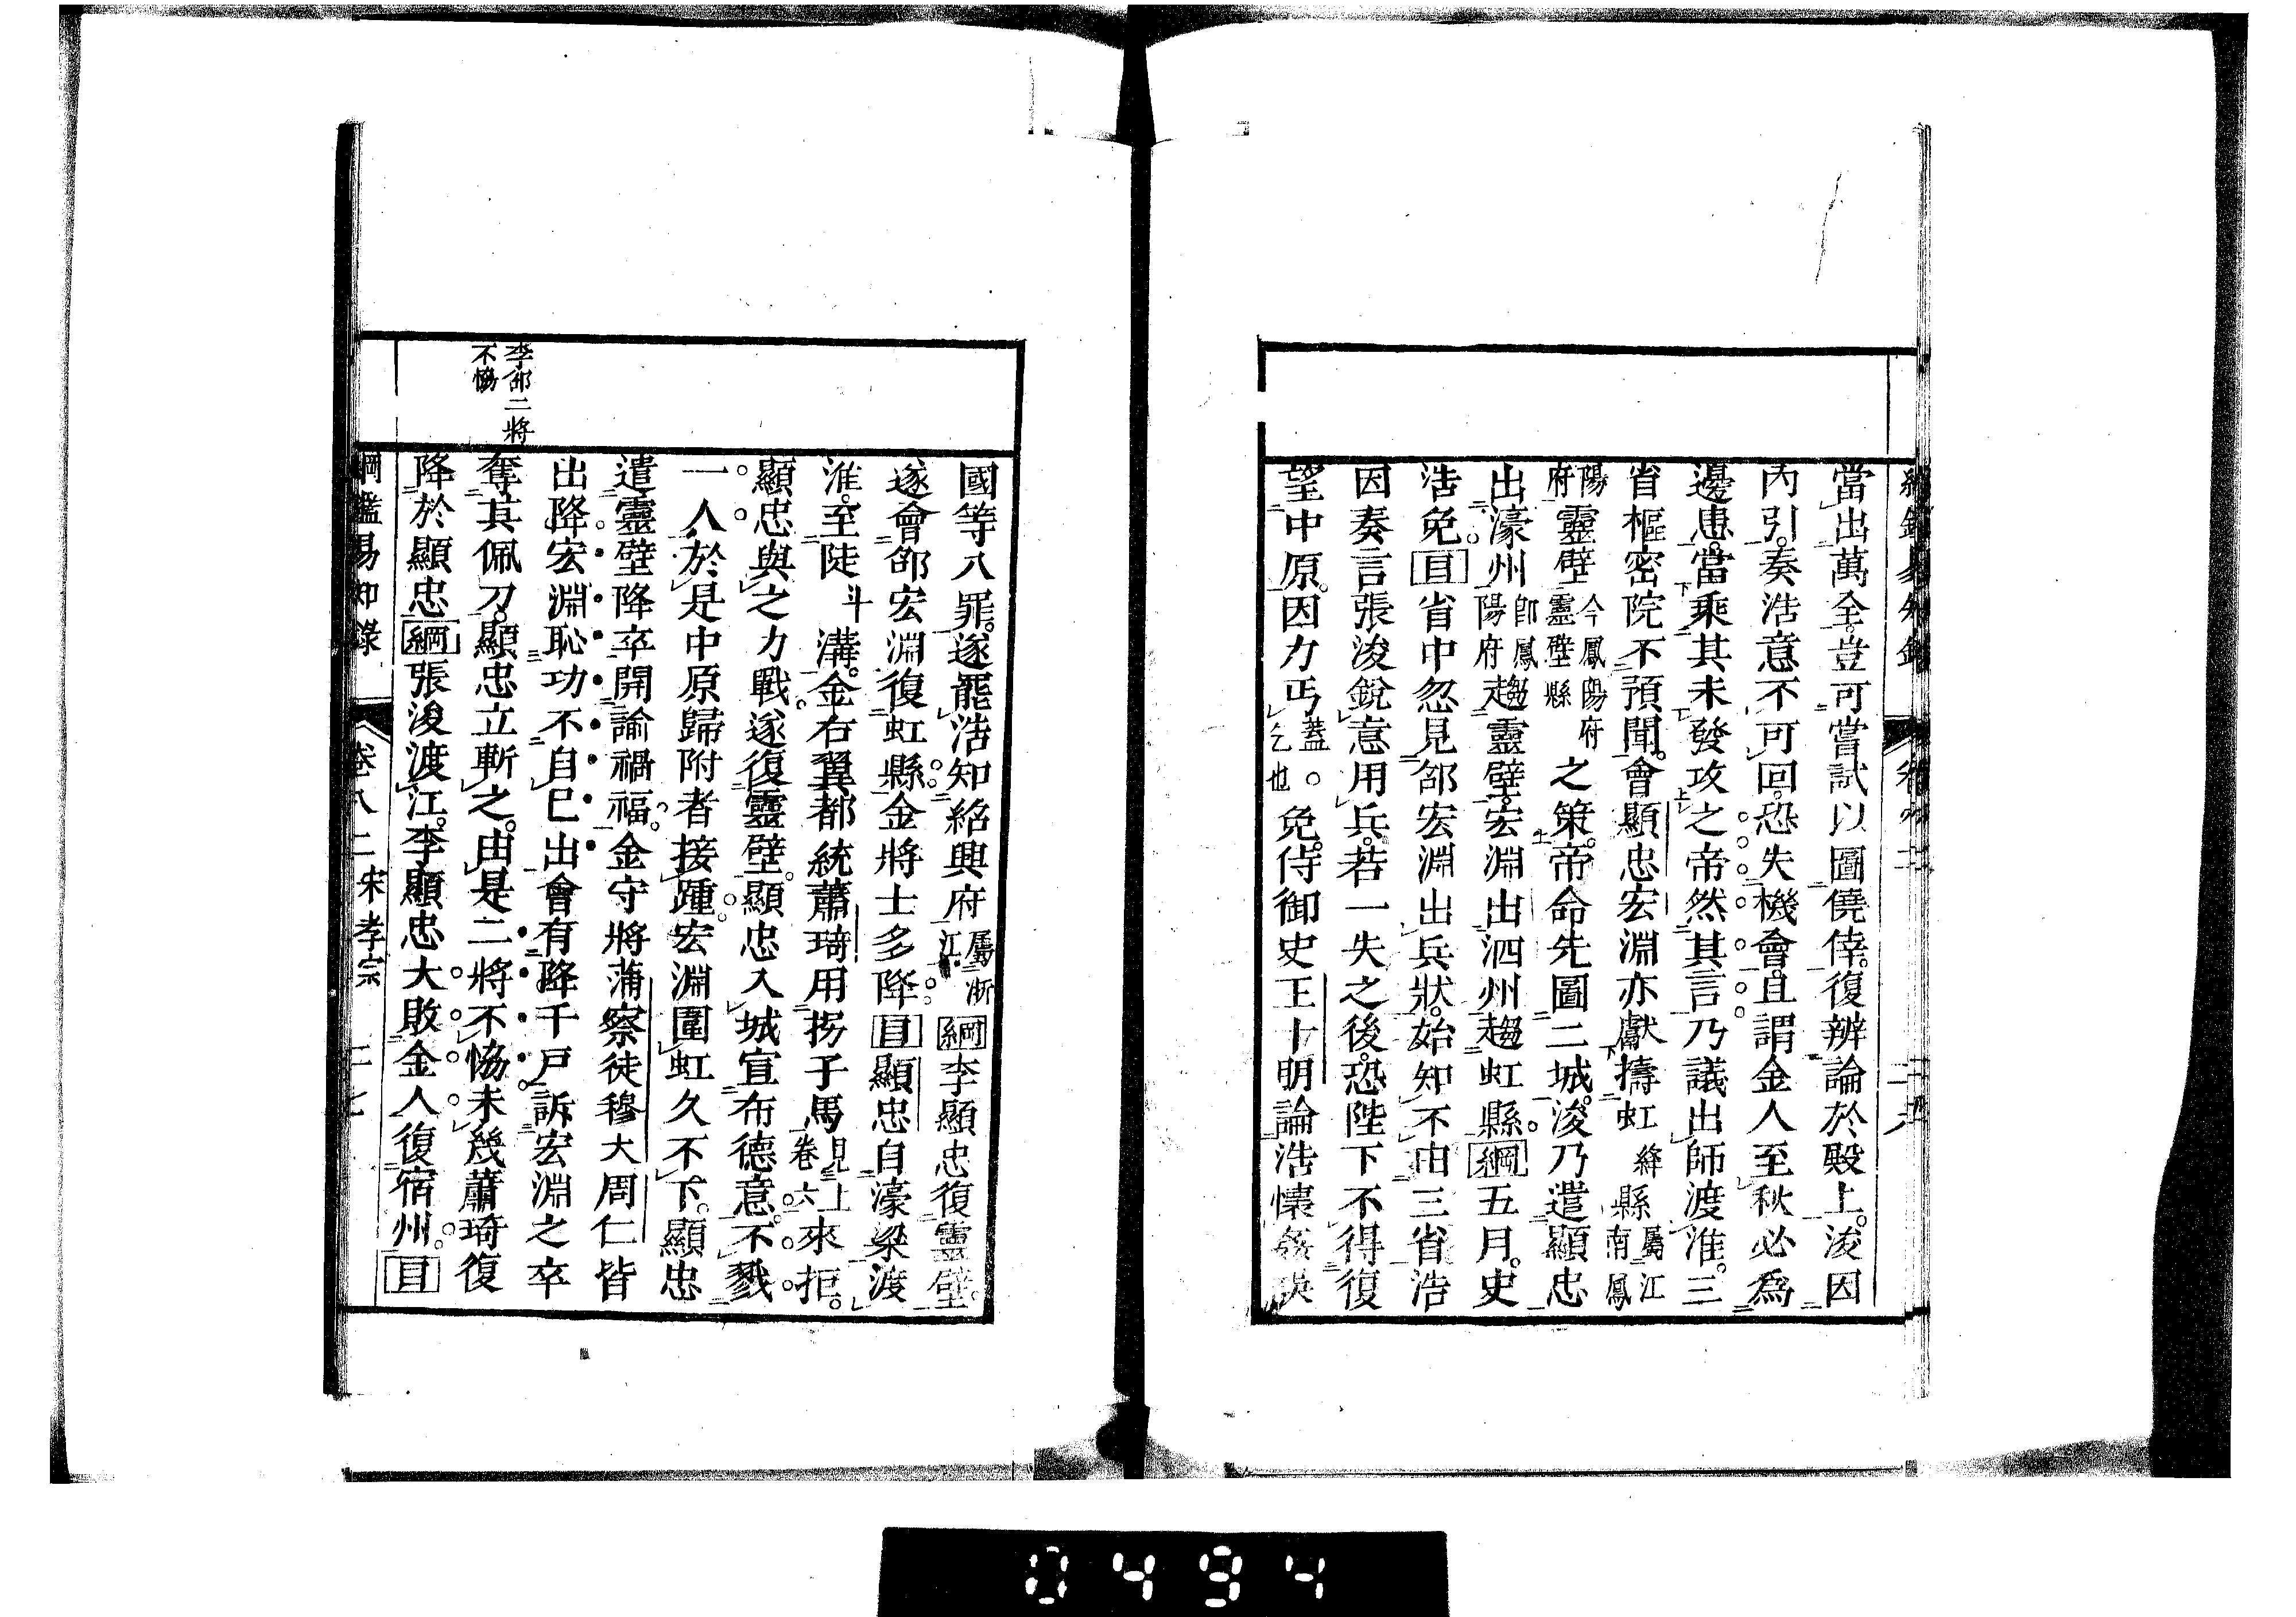 當出萬全豈可嘗試以圖僥倖復辨論於殿上浚因
內引奏浩意不可回恐失機會且謂金人至秋必爲
邊患當乘其未發攻之帝然其言乃議出師渡淮三
省樞密院不預聞會顯忠宏淵亦獻擣虹絳縣屬江南鳳
陽府靈壁今鳳陽府靈壁縣之策帝命先圖二城浚乃遣顯忠
出濠州卽鳳陽府趨靈壁宏淵出泗州趨虹縣綱五月史
浩免目省中忽見邵宏淵出兵狀始知不由三省浩
因奏言張浚銳意用兵若一失之後恐陛下不得復
望中原因力丐蓋乞也免侍御史王十明論浩懷姦誤
國等八罪遂罷浩知紹興府屬浙江綱李顯忠復靈壁
遂會邵宏淵復虹縣金將士多降目顯忠自濠梁渡
淮至陡斗溝金右翼都統蕭琦用拐子馬見上卷六來拒
顯忠與之力戰遂復靈壁顯忠入城宣布德意不戮
一人於是中原歸附者接踵宏淵圍虹久不下顯忠
遣靈壁降卒開諭禍福金守將蒲察徒穆大周仁皆
出降宏淵恥功不自己出會有降千戶訴宏淵之卒
奪其佩刀顯忠立斬之由是二將不恊未幾蕭琦復
降於顯忠綱張浚渡江李顯忠大敗金人復宿州目
李邵二將
不恊
綱鑑易知錄 卷八二 宋孝宗
0494